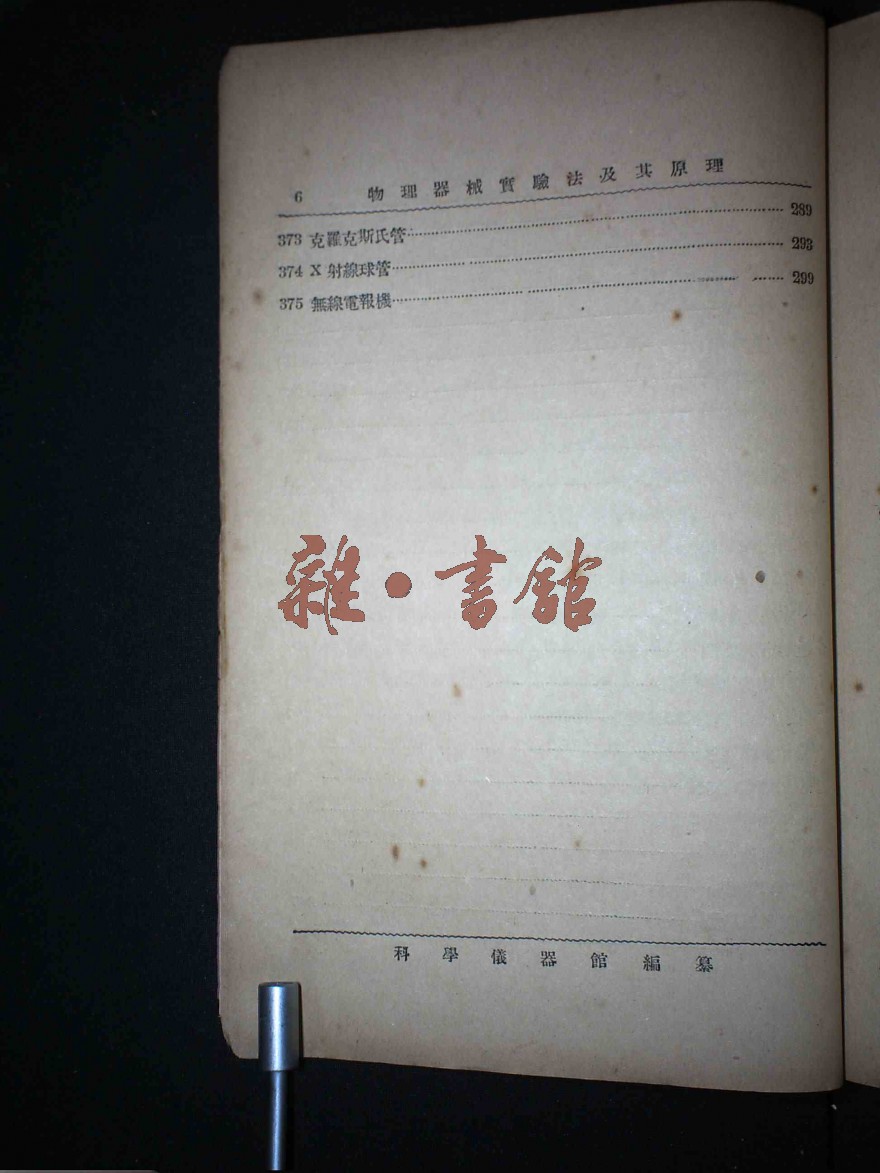 6 物理器械實驗法及其原理
373 克羅克斯氏管 289
374 X 射線球管 293
375 無線電報機 299
雜·書館
科學儀器館編纂